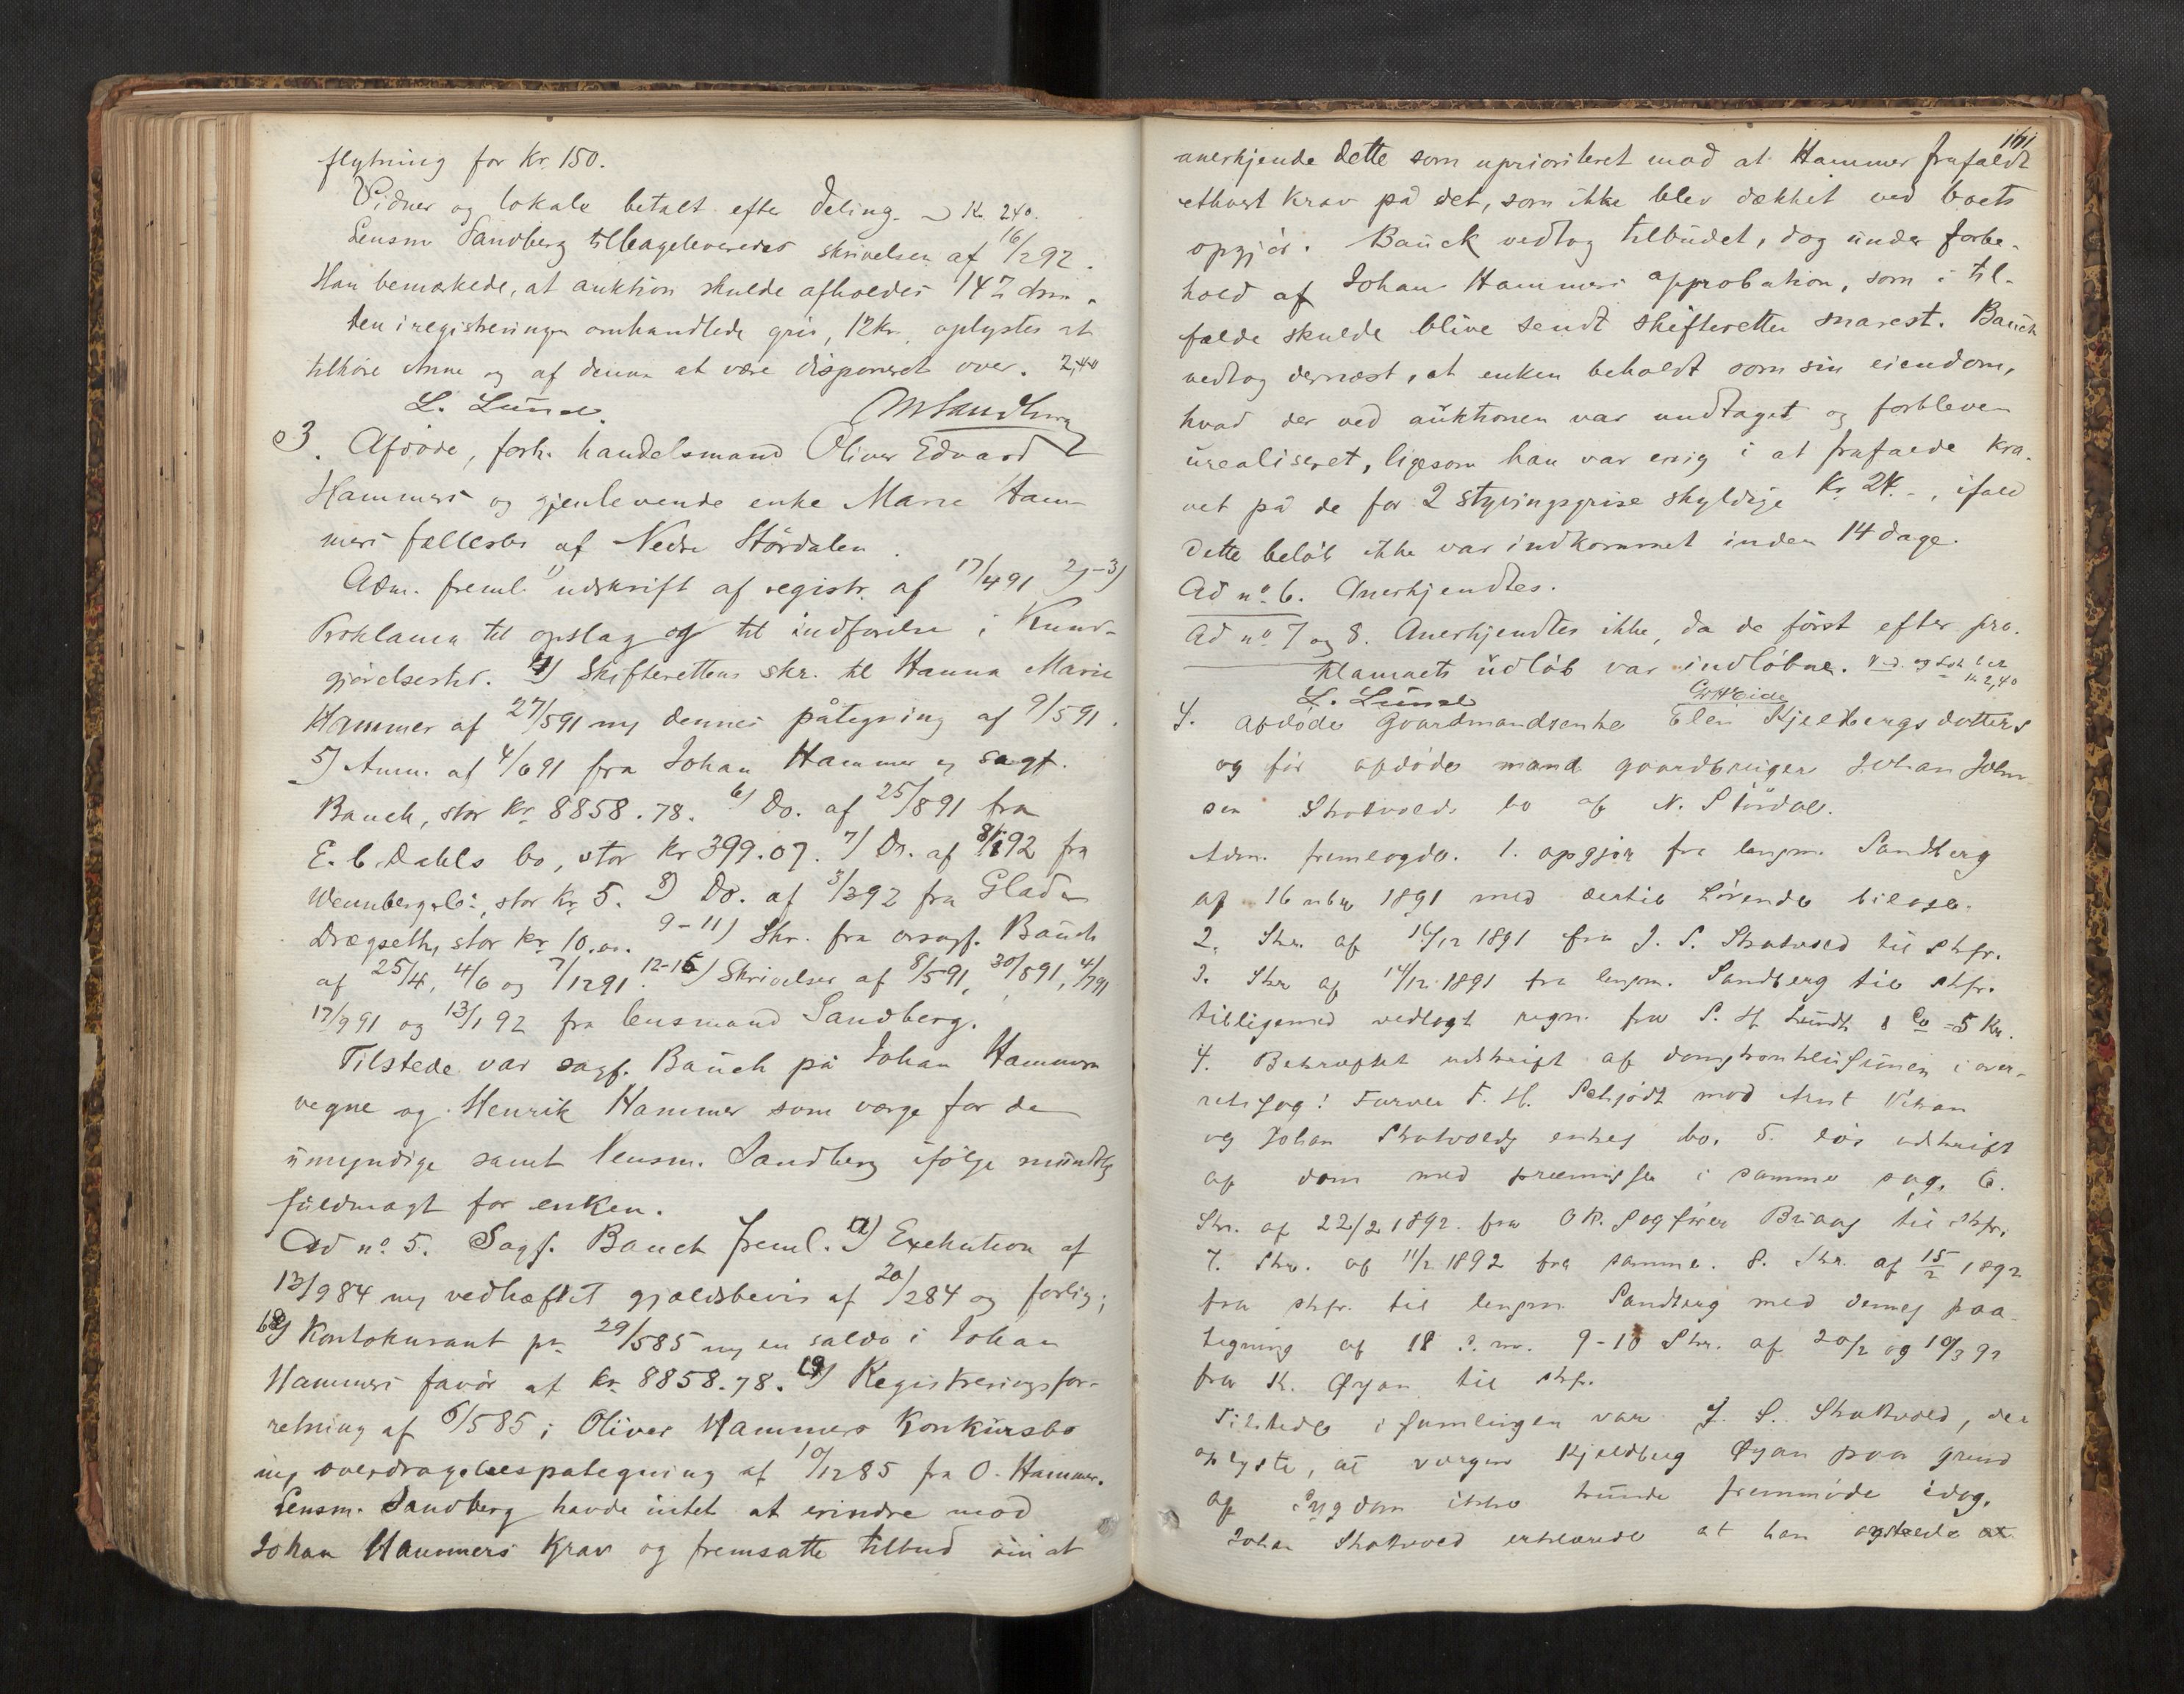 flytning for Kr. 150.
Vidner og lokale betalt efter deling. Kr. 240.
Lensm Sandberg tilbageleveredes skrivelsen af 16/2 92.
Han bemærkede, at auktion skulde afholdes 14 ds.
Den i registreringen omhandlede gris, 12 kr., oplystes at
tilhøre Anne og af denne at være disponeret over. 2,40
L. Lund MSandberg
3. Afdøde, forh. handelsmand Oliver Edvard
Hammers og gjenlevende enke Marie Ham-
mers fællesbo af Nedre Stördalen.
Adm. freml. 1) udskrift af registr. af 17/4 91 2)-3)
Proklama til opslag og til indførelse i Kund-
gjørelsestid. 4) Skifterettens skr. til Hanna Marie
Hammer af 27/5 91 m/ dennes påtegning af 9/5 91.
5) Anm. af 4/6 91 fra Johan Hammer v/ sagf.
Bauck, stor Kr. 8858.78. 6) Do. af 25/8 91 fra
E. C. Dahls bo, stor Kr 399.07. 7) Do. af 8/1 92 fra
Wennberg & Co., stor Kr. 5. 8) Do. af 3/3 92 fra Glad &
Drægseth, stor Kr. 10.00. 9-11) Skr. fra orsagf. Bauck
af 25/4, 4/6 og 7/12 91. 12-16) Skrivelser af 8/5 91, 30/5 91, 4/7 91
17/9 91 og 13/1 92 fra lensmand Sandberg.
Tilstede var sagf. Bauck på Johan Hammers
vegne og Henrik Hammer som værge for de
umyndige samt lensm. Sandberg ifølge mundtlig
fuldmagt for enken.
Ad no. 5. Sagf. Bauck freml. 17) Exekution af
13/9 84 m/ vedhæftet gjældsbevis af 20/2 84 og forlig;
18) Kontokurant pr. 29/5 85 m/ en saldo i Johan
Hammers favør af kr. 8858.78. 19) Registreringsfor-
retning af 6/5 85 i Oliver Hammers Konkursbo
m/ overdragelsespategning af 10/12 85 fra O. Hammer.
Lensm. Sandberg havde intet at erindre mod
Johan Hammers krav og fremsatte tilbud om at
161
anerkjende dette som uprioriteret mod at Hammer frafaldt
ethvert krav på det, som ikke blev dækket ved boets
opgjør. Bauck vedtog tilbudet, dog under forbe-
hold af Johan Hammers approbation, som i til-
fælde skulde blive sendt skifteretten snarest. Bauck
vedtog dernæst, at enken beholdt som sin eiendom,
hvad der ved auktionen var undtaget og forbleven
urealiseret, ligesom han var enig i at frafalde kra-
vet på de for 2 styvingsgrise skyldige Kr. 24.-, ifald
dette beløb ikke var indkommet inden 14 dage.
Ad no. 6. Anerkjendtes.
Ad no. 7 og 8. Anerkjendtes ikke, da de først efter pro-
klamaets udløb var indløbne. V.d. og lok. bet. kr. 2,40
L. Lund
4. Afdøde gaardmandsenke Elen Kjeldbergsdatters
og før afdøde mand gaardbruger Johan John
sen Skatvolds bo af N. Stördal.
Adm. fremlagde. 1. opgjør fra lensm. Sandberg
af 16 nbr 1891 med dertil hørende bilage.
2. Skr. af 16/12 1891 fra J. S. Skatvold til skfr.
3. Skr af 14/12 1891 fra lensm. Sandberg til skfr.
tilligemed vedlagt regn. fra S. H. Lundh & Co = 5 Kr.
4. Bekræftet udskrift af domskonklusionen i over-
retssag: Farver F. H. Schjødt mod Arnt Vikan
og Johan Skatvolds enkes bo. 5. løs udskrift
af dom med præmisser i samme sag. 6.
Skr. af 22/2 1892 fra OR. Sagfører Buaas til skfr.
7. Skr. af 11/2 1892 fra samme. 8. Skr. af 15/2 1892
fra skfr. til lensm. Sandberg med dennes paa-
tegning af 18 s. m. 9-10 Skr. af 20/2 og 10/3 92
fra K. Øyan til skfr.
Tilstede i samlingen var J. S. Skatvold, der
oplyste, at værgen Kjeldberg Øyan paa grund
af sygdom ikke kunde fremmøde idag.
Johan Skatvold erklærede at han